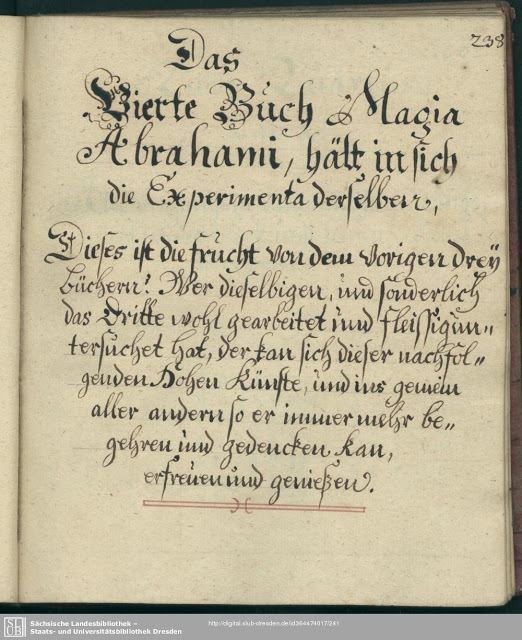 238
Das
Vierte Buch Magia
Abrahami, hält in sich
die Experimenta derselben,
Dieses ist die frucht von dem vorigen drey
büchern! Wer dieselbigen, und sonderlich
das Dritte wohl gearbeitet und fleissig un=
tersuchet hat, der kan sich dieser nachfol=
genden Hohen Künste, und ins gemein
aller andern so er immer mehr be=
gehren und gedencken kan,
erfreuen und genießen.
SLUB
Sächsische Landesbibliothek –
Staats- und Universitätsbibliothek Dresden
http://digital.slub-dresden.de/id364474017/241